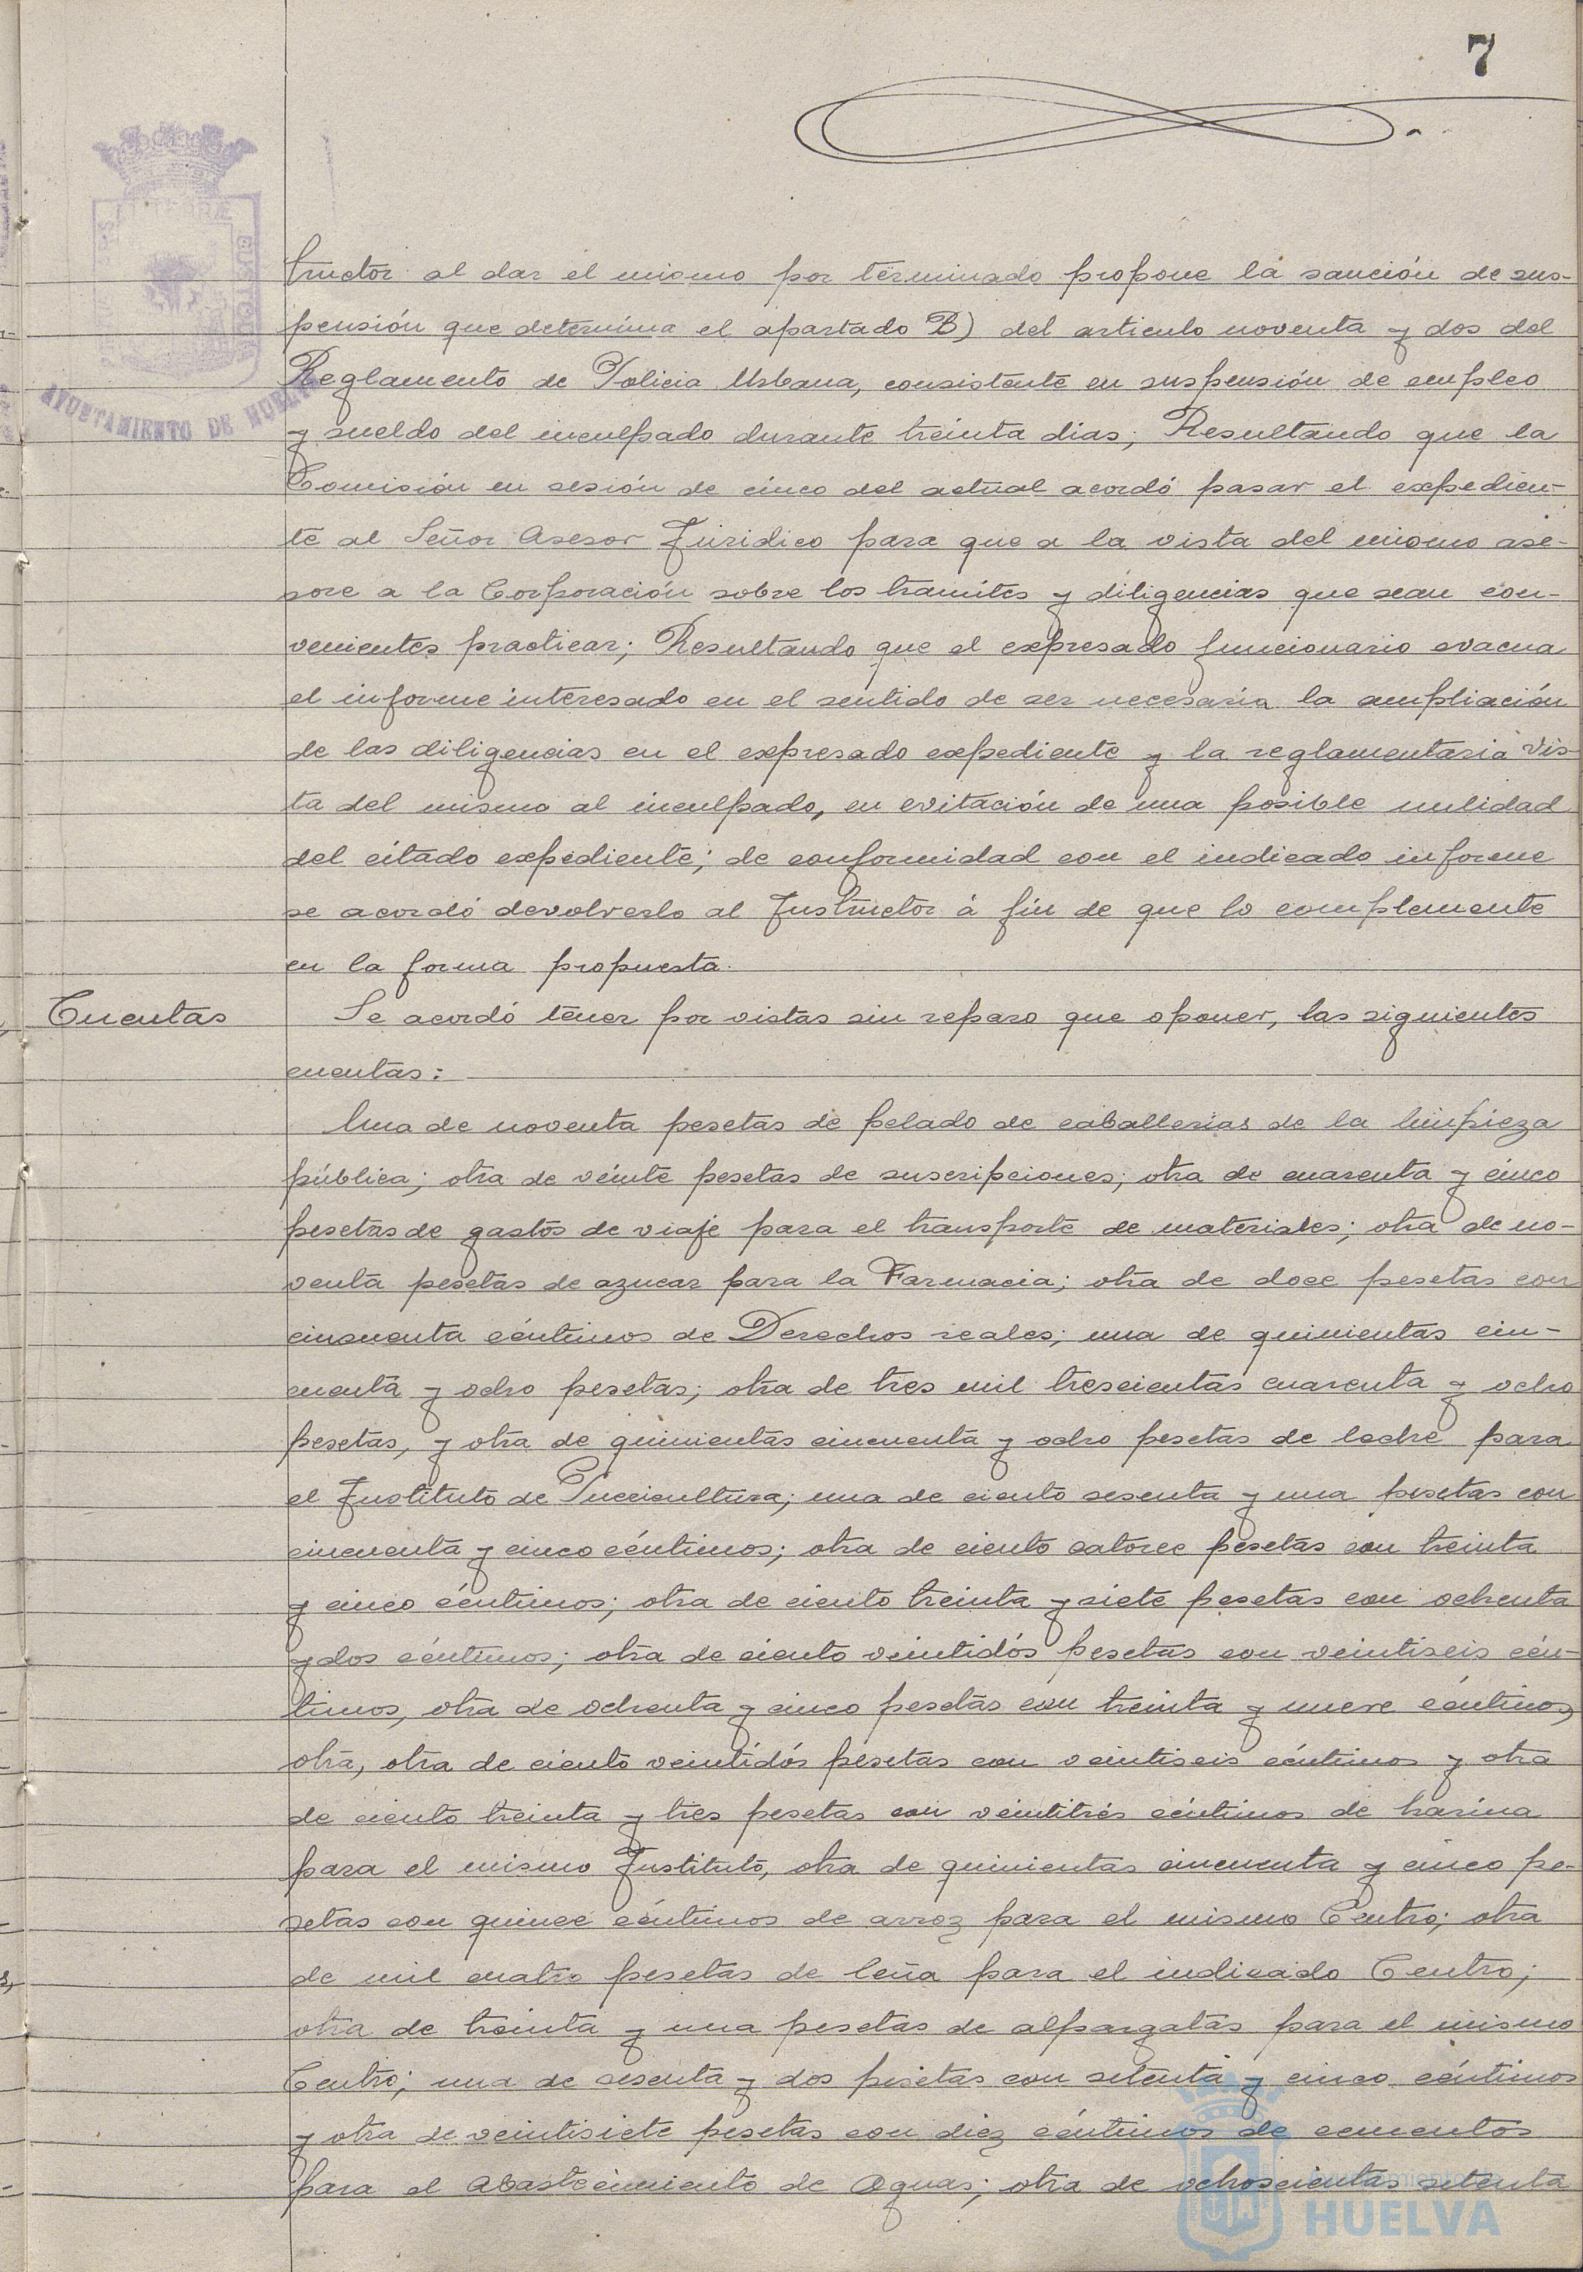 7
tructor al dar el mismo por terminado propone la sanción de sus-
pensión que determina el apartado B) del articulo noventa y dos del
Reglamento de Policia Urbana, consistente en suspensión de empleo
y sueldo del inculpado durante treinta dias; Resultando que la
Comisión en sesión de cinco del actual acordó pasar el expedien-
te al Señor Asesor Juridico para que a la vista del mismo ase-
sore a la Corporación sobre los tramites y diligencias que sean con-
venientes practicar; Resultando que el expresado funcionario evacua
el informe interesado en el sentido de ser necesaria la ampliación
de las diligencias en el expresado expediente y la reglamentaria vis-
ta del mismo al inculpado, en evitación de una posible nulidad
del citado expediente; de conformidad con el indicado informe
se acordó devolverlo al Instructor á fin de que lo complemente
en la forma propuesta.
Cuentas
Se acordó tener por vistas sin reparo que oponer, las siguientes
cuentas:
Una de noventa pesetas de pelado de caballerias de la limpieza
pública; otra de veinte pesetas de suscripciones; otra de cuarenta y cinco
pesetas de gastos de viaje para el transporte de materiales; otra de no-
venta pesetas de azucar para la Farmacia; otra de doce pesetas con
cincuenta céntimos de Derechos reales; una de quinientas cin-
cuenta y ocho pesetas; otra de tres mil trescientas cuarenta y ocho
pesetas, y otra de quinientas cincuenta y ocho pesetas de leche para
el Instituto de Puericultura; una de ciento sesenta y una pesetas con
cincuenta y cinco céntimos; otra de ciento catorce pesetas con treinta
y cinco céntimos; otra de ciento treinta y siete pesetas con ochenta
y dos céntimos; otra de ciento veintidós pesetas con veintiseis cén-
timos, otra de ochenta y cinco pesetas con treinta y nueve céntimos,
otra, otra de ciento veintidós pesetas con veintiseis céntimos y otra
de ciento treinta y tres pesetas con veintitrés céntimos de harina
para el mismo Instituto, otra de quinientas cincuenta y cinco pe-
setas con quince céntimos de arroz para el mismo Centro; otra
de mil cuatro pesetas de leña para el indicado Centro;
otra de treinta y una pesetas de alpargatas para el mismo
Centro; una de sesenta y dos pesetas con setenta y cinco céntimos
y otra de veintisiete pesetas con diez céntimos de cementos
para el Abastecimiento de Aguas; otra de ochocientas setenta
AYUNTAMIENTO DE HUELVA
HUELVA